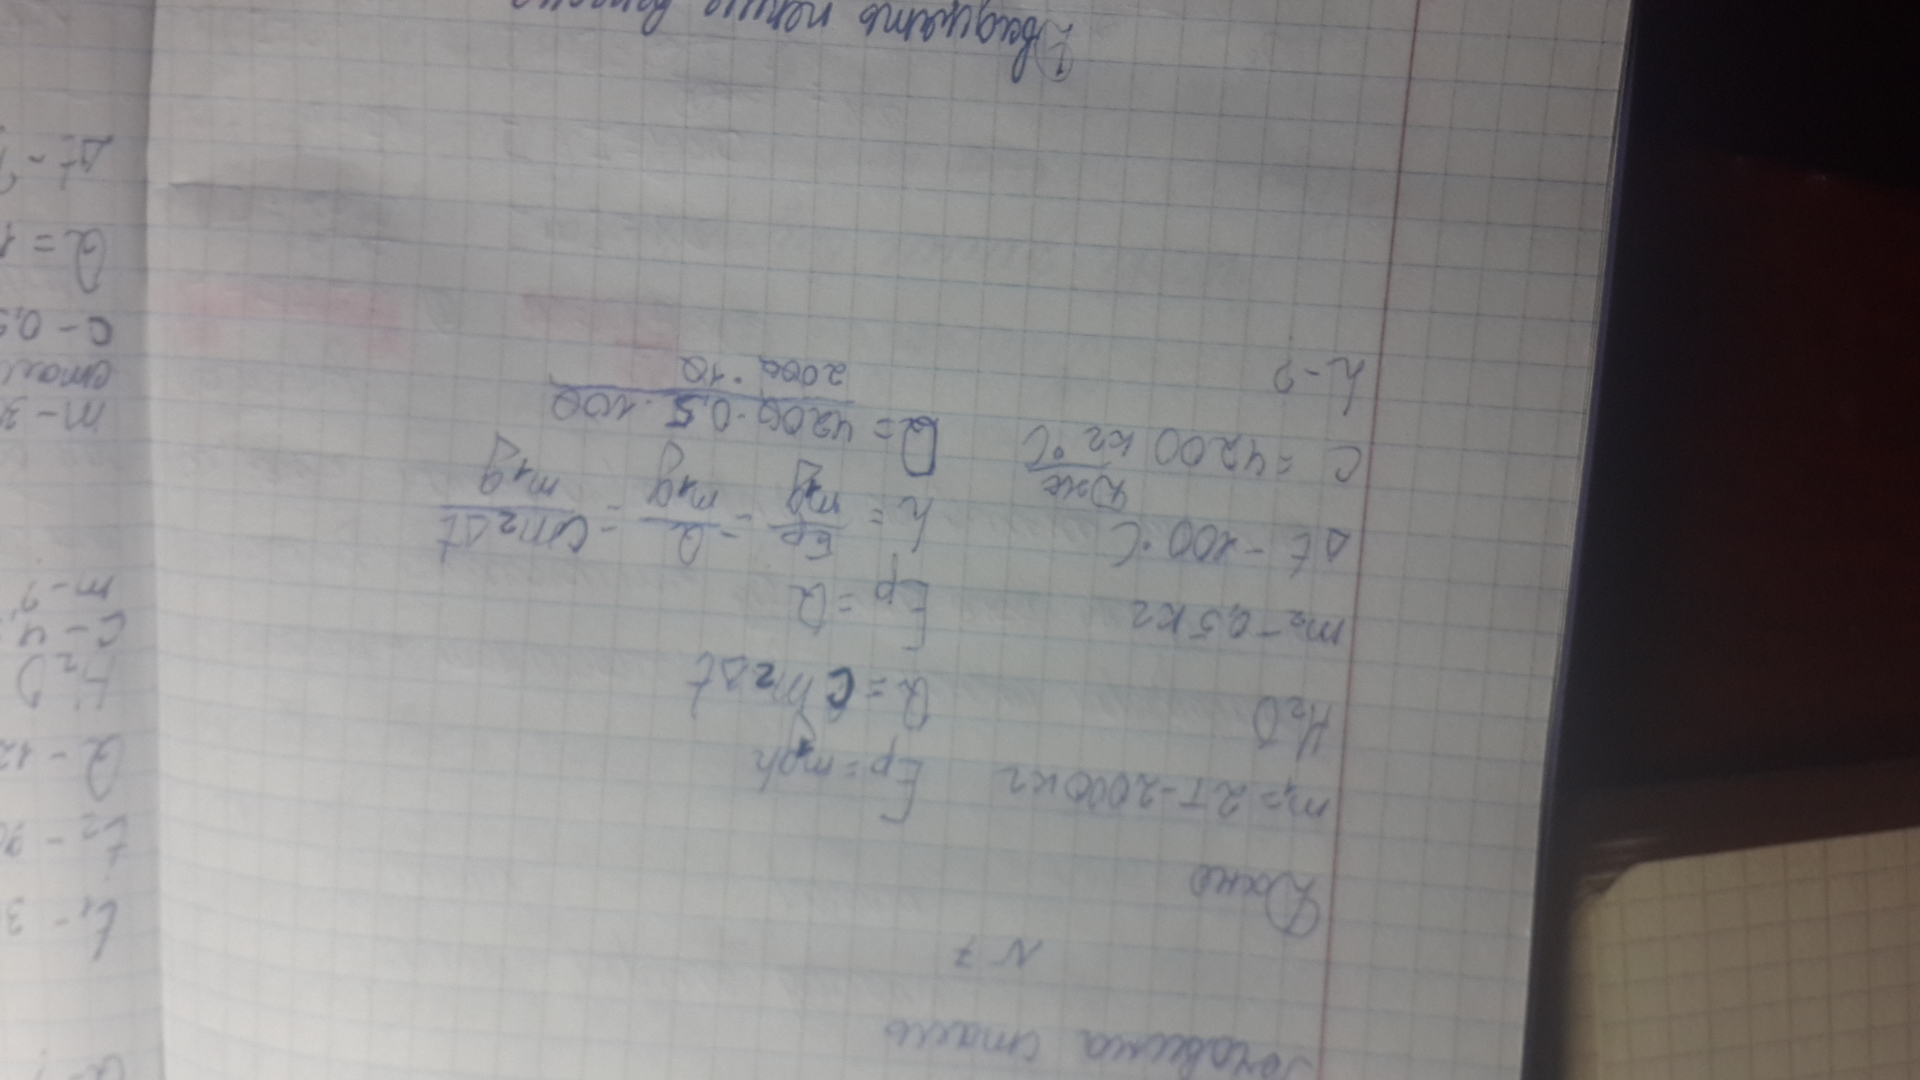 сталь
N 7
Дано
m₁=2т-2000кг
H₂O
m₂-0,5 кг
Δt -100°C
c =4200 Дж/кг °C
h-?
Ep=m₁gh
Q=cm₂Δt
Ep=Q
h = Ep/m₁g = Q/m₁g = cm₂Δt/m₁g
Q = 4200·0,5·100/2000·10
t₁- 3
t₂ - 90
Q - 12
H₂O
c - 4,
m-?
m - 3
c - 0,5
Q = 1
Δt - ?